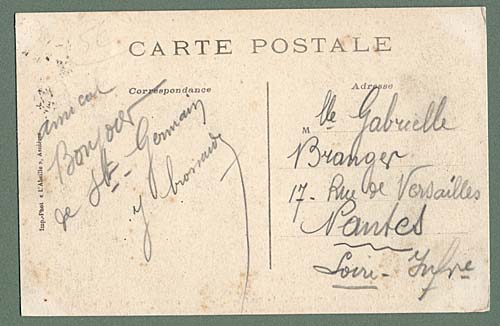 CARTE POSTALE
Correspondance
Adresse
amical
Bonjour
de St-Germain
J
Mlle Gabrielle
Branger
17- Rue de Versailles
Nantes
Loire-Infre
Imp.-Phot « L'Abeille », Asnières